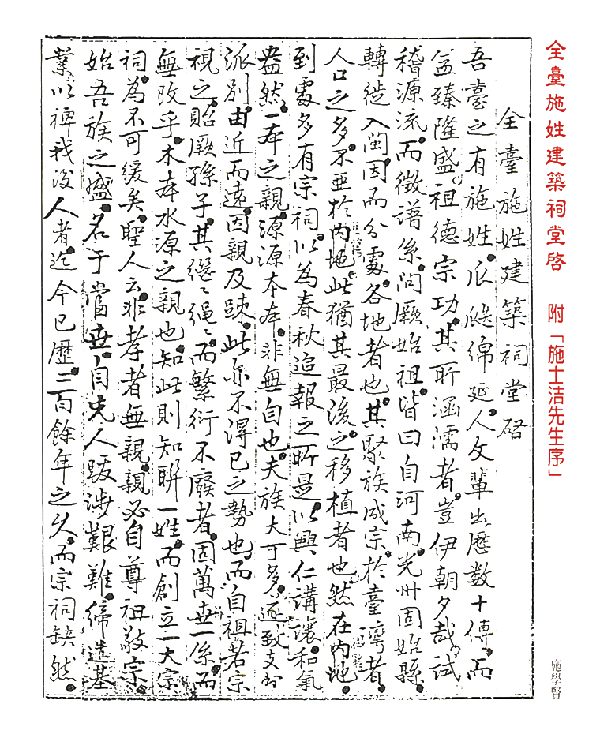 全臺施姓建築祠堂啓 附「施士洁先生序」
全臺施姓建築祠堂啓
吾臺之有施姓。瓜緜綿延。人文輩出。歷数十傳。而
益臻隆盛。祖德宗功。其所涵濡者。豈伊朝夕哉。試
稽源流。而徵譜系。问厥始祖。皆曰自河南光州固始縣。
轉徙入閩。因而分處各地者也。其聚族成宗。於臺灣者。
人口之多。不亞於内地。此猶其最後之移植者也。然在内地。
到處多有宗祠。以為春秋追報之所。是以興仁講讓。和氣
盎然。一本之親。源源本本。非無自也。夫族大丁多。
派别由近而遠。因親及疎。此亦不得已之勢也。而自祖若宗
視之。貽厥孫子。其繩繩而繁衍不廢者。固萬世一系。而
無改乎。木本水源之親也。知此則知聯一姓。而創立一大宗
祠。為不可緩矣。聖人云。非孝者無親。親必自尊祖敬宗
始。吾族之盛。名于當世。自先人跋涉艱難。締造基
業。以裨我後人者。迄今已歷二百餘年之久。而宗祠缺然。
施學習